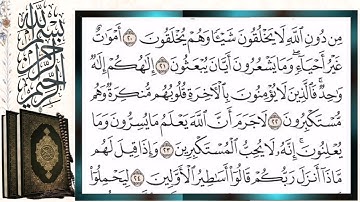 بسم الله الرحمن الرحيم
مِن دُونِ ٱللَّهِ لَا يَخۡلُقُونَ شَيۡـٔٗا وَهُمۡ يُخۡلَقُونَ ٢٠ أَمۡوَٰتٌ
غَيۡرُ أَحۡيَآءٖۖ وَمَا يَشۡعُرُونَ أَيَّانَ يُبۡعَثُونَ ٢١ إِلَٰهُكُمۡ إِلَٰهٞ
وَٰحِدٞۚ فَٱلَّذِينَ لَا يُؤۡمِنُونَ بِٱلۡأٓخِرَةِ قُلُوبُهُم مُّنكِرَةٞ وَهُم
مُّسۡتَكۡبِرُونَ ٢٢ لَا جَرَمَ أَنَّ ٱللَّهَ يَعۡلَمُ مَا يُسِرُّونَ وَمَا
يُعۡلِنُونَۚ إِنَّهُۥ لَا يُحِبُّ ٱلۡمُسۡتَكۡبِرِينَ ٢٣ وَإِذَا قِيلَ لَهُم
مَّاذَآ أَنزَلَ رَبُّكُمۡ قَالُوٓاْ أَسَٰطِيرُ ٱلۡأَوَّلِينَ ٢٤ لِيَحۡمِلُوٓاْ